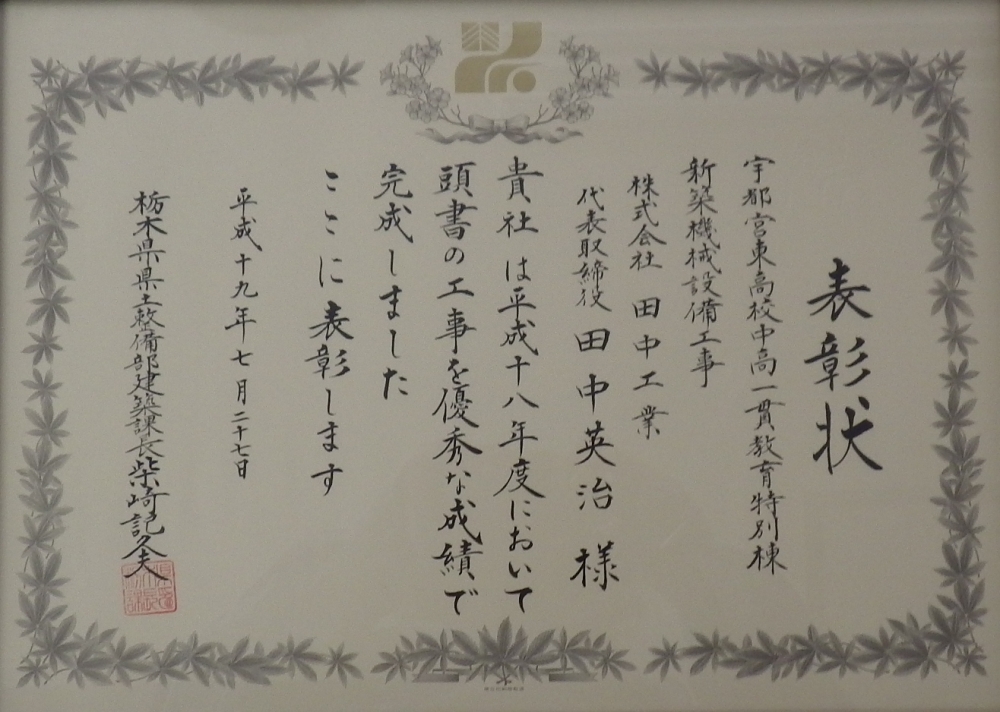 表彰状
宇都宮東高校中高一貫教育特別棟
新築機械設備工事
株式会社 田中工業
代表取締役 田中英治 様
貴社は平成十八年度において
頭書の工事を優秀な成績で
完成しました
ここに表彰します
平成十九年七月二十七日
栃木県県土整備部建築課長 柴崎記久夫